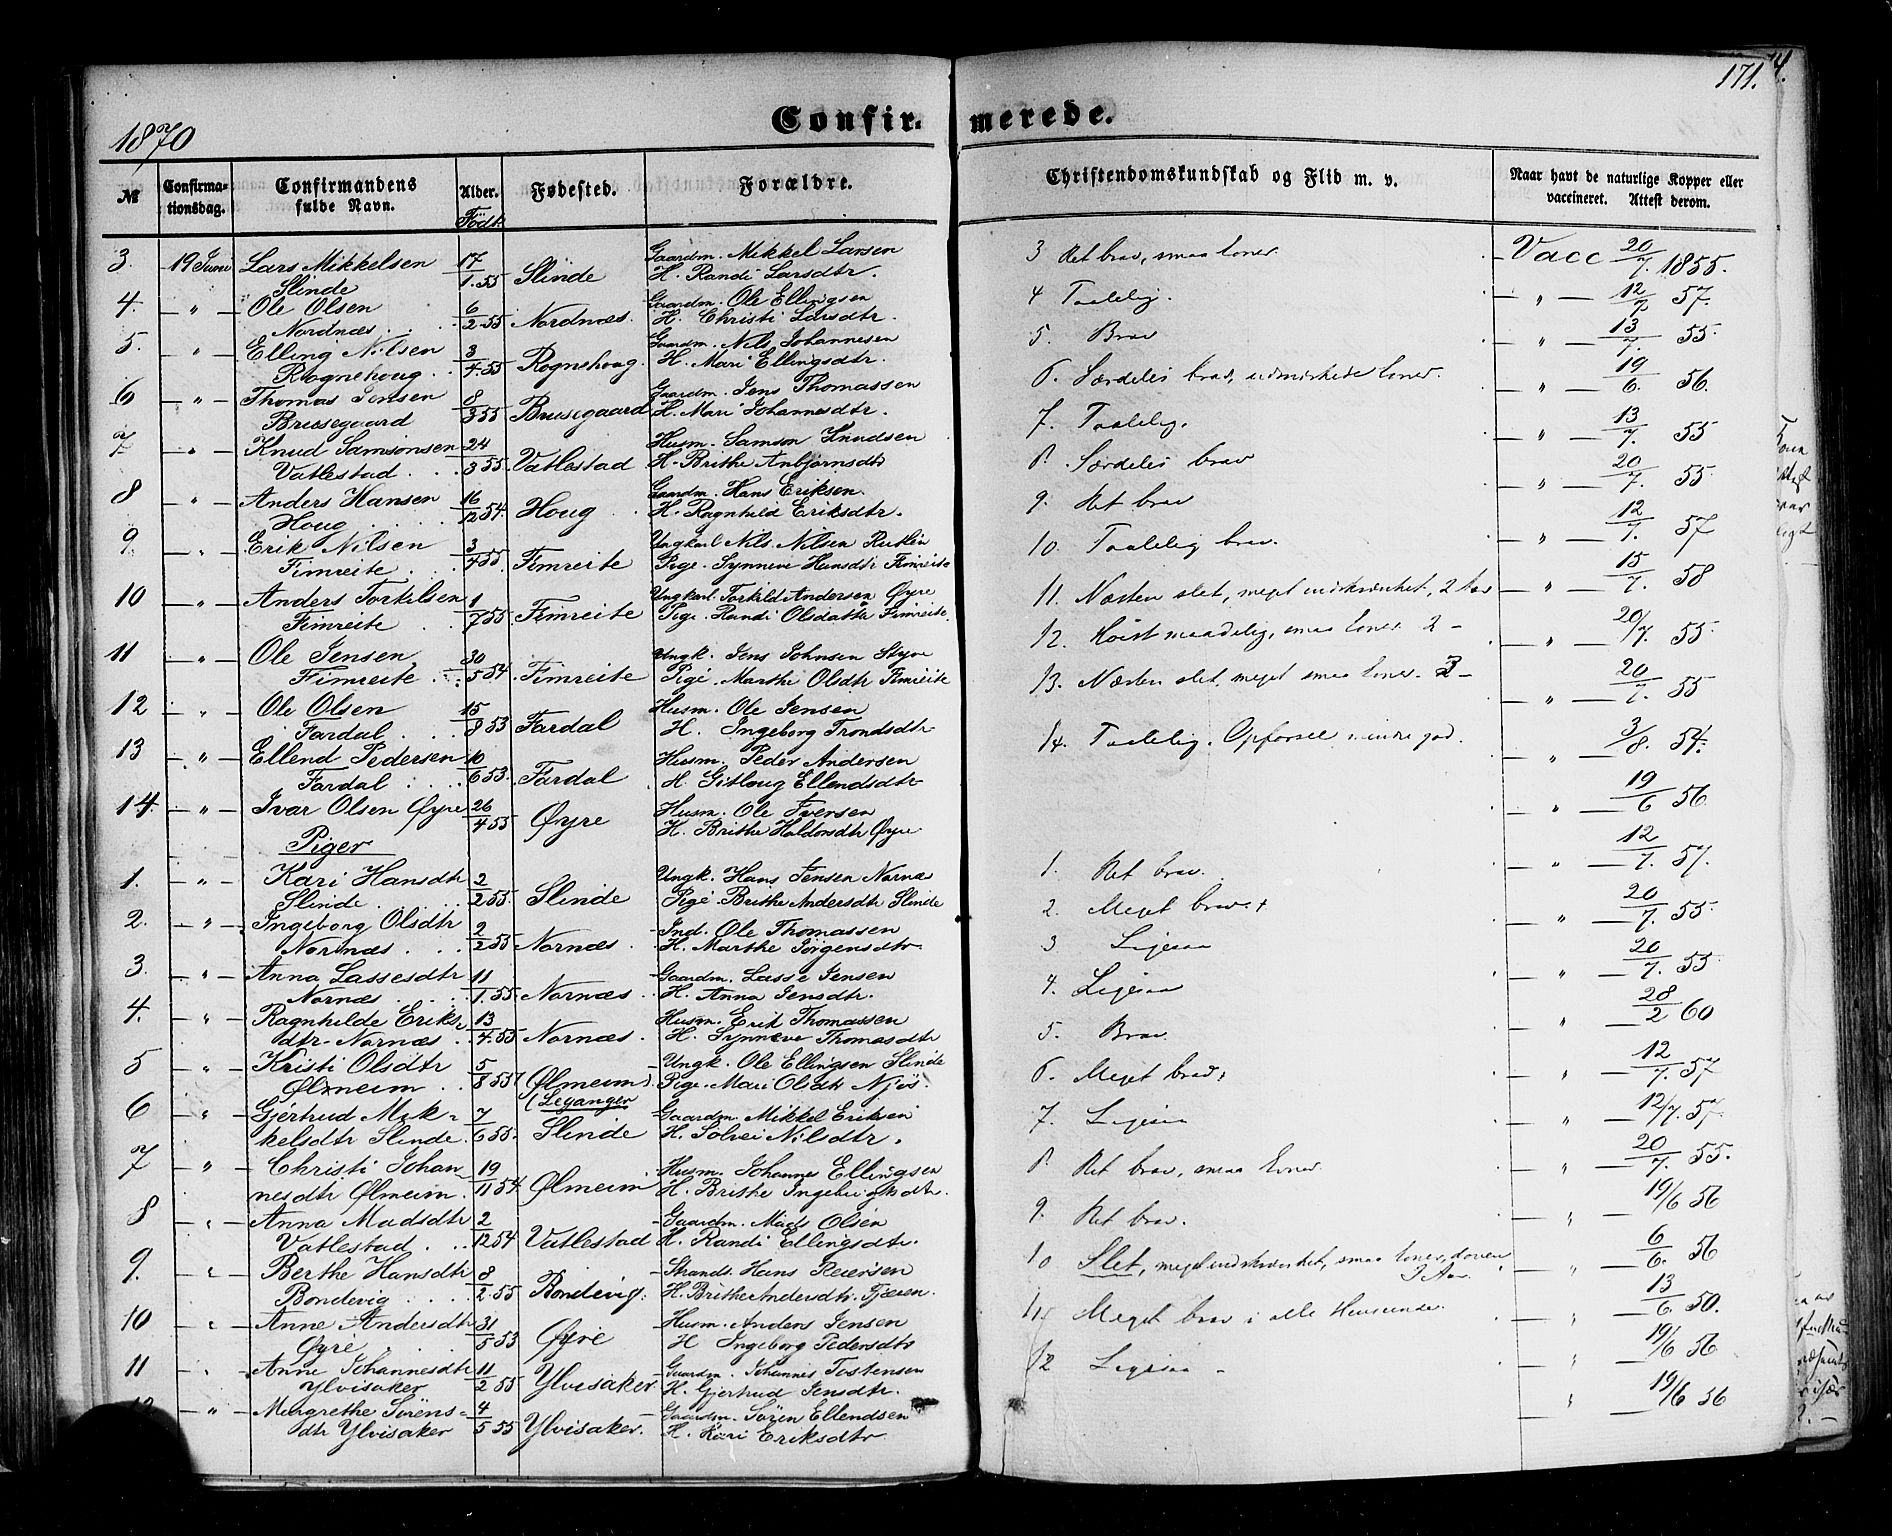 171.
1870
Confirmerede.
№ Confirmationsdag. Confirmandens fulde Navn. Alder. Født. Fødested. Forældre. Christendomskundskab og Flid m. v. Naar havt de naturlige Kopper eller vaccineret. Attest derom.
3. 19 Juni Lars Mikkelsen 17/1.55 Slinde Gaardm. Mikkel Larsen 3 Ret brav, smaa Evner. Vacc 20/7. 1855.
Slinde H. Randi Larsdtr.
4. — " — Ole Olsen 6/2.55 Nordnæs. Gaardm. Ole Ellingsen 4 Taalelig. — " — 12/7 57.
Nordnæs H. Christi Larsdtr.
5. " Elling Nilsen 3/4.55 Rognehoug Gaardm. Nils Johannesen 5. Brav — " — 13/7. 55.
Rognehoug H. Mari Ellingsdtr.
6 — " — Thomas Jensen 8/3 55 Brusegaard Gaardm. Jens Thomassen 6. Særdeles brav, udmærkede Evner. — " — 19/6. 56.
Brusegaard H. Mari Johannesdtr.
7 — " — Knud Samsonsen 24/3 55. Vatlestad Husm. Samson Knudsen 7. Taalelig. — " — 13/7. 55
Vatlestad H. Brithe Anbjørnsdtr
8 — " — Anders Hansen 16/12 54. Houg Gaardm. Hans Eriksen. 8. Særdeles brav — " — 20/7. 55
Houg H. Ragnhild Eriksdtr.
9. — " — Erik Nilsen 3/4 55. Fimreite Ungkarl Nils Nilsen Rutlin 9. Ret brav — " — 12/7. 57
Fimreite Pige. Synneve Hansdtr Fimreite
10 — " — Anders Torkilsen 1/7 55. Fimreite Ungkarl Torkild Andersen Øyre 10. Taalelig brav. — " — 15/7. 58
Fimreite Pige. Randi Olsdatter Fimreite.
11 — " — Ole Jensen 30/5 54. Fimreite Ungk. Jens Johnsen Styve 11. Næsten slet, meget indskrænket, 2 Aar — " — 20/7. 55.
Fimreite Pige. Marthe Olsdtr Fimreite
12 — " — Ole Olsen 15/8 53 Fardal Husm. Ole Jensen 12. Høist maadelig, smaa Evner. 2 — — " — 20/7. 55
Fardal H. Ingeborg Trondsdtr
13 — " — Ellend Pedersen 10/6 53. Fardal Husm. Peder Andersen 13. Næsten slet, meget smaa Evner. 3 — — " — 3/8. 54.
Fardal H. Gitloug Ellendsdtr
14. — " — Ivar Olsen Øyre 26/4 55 Øyre Husm. Ole Iversen 14. Taalelig. Opførsel mindre god. " — 19/6 56
H. Brithe Haldorsdtr Øyre
Piger
1. — " — Kari Hansdtr 2/2 55. Slinde Ungk. Hans Jensen Nornæs 1. Ret brav. — " — 12/7. 57.
Slinde Pige Brithe Andersdtr Slinde
2. — " — Ingeborg Olsdtr 2/2 55 Nornæs. Ind. Ole Thomassen 2. Meget brav + " — 20/7. 55.
Nornæs H. Marthe Jørgensdtr
3. — " — Anna Lassesdtr 11/1.55. Nornæs Gaardm. Lasse Jensen 3 Ligesaa — " — 20/7. 55
Nornæs H. Anna Jensdtr.
4. — " — Ragnhilde Eriks- 13/4.55 Nornæs. Husm. Erik Thomassen 4. Ligesaa — " — 28/2 60
dtr. Nornæs H. Synneve Thomasdtr
5 — " — Kristi Olsdtr 5/8 55 (Ølmeim) Ungk. Ole Ellingsen Slinde 5. Brav. — " — 12/7. 57
Ølmeim (Leganger Pige. Mari Olsdtr Njøs.
6 — " — Gjertrud Mik- 7/6 55. Slinde Gaardm. Mikkel Eriksen 6. Meget brav + — " — 12/7. 57.
kelsdtr Slinde. H. Solvei Nilsdtr.
7 — " — Christi Johan- 19/11 54 Ølmeim Husm. Johannes Ellingsen 7. Ligesaa — " — 20/7. 55.
nesdtr Ølmeim. H. Brithe
8 — " — Anna Madsdtr 2/12 54 Vatlestad Gaardm. Mads Olsen 8. Ret brav, smaa Evner. — " — 19/6 56
Vatlestad H. Randi Ellingsdtr.
9. — " — Berthe Hansdtr 8/2 55 Bondevig. Strands. Hans Reiersen 9. Ret brav. — " — 6/6. 56
Bondevig H. Brithe Andersdtr. Fjæren.
10 — " — Anne Andersdtr 31/5 53 Øyre Husm. Anders Jensen 10 Slet, meget indskrænket, smaa Evner, doven — " — 13/6. 50.
Øyre H Ingeborg Pedersdtr 3 Aar.
11 " Anne Johannesdtr 11/2 55 Ylvisaker. Gaardm. Johannes Tostensen 11. Meget brav i alle Henseender. — " — 19/6 56
Ylvisaker H. Gjertrud Jensdtr.
12 — " — Margrethe Sørens- 4/5 55 Ylvisaker. Gaardm. Søren Ellendsen 12 Ligesaa — — " — 19/6 56
dtr Ylvisaker H. Kari Eriksdtr